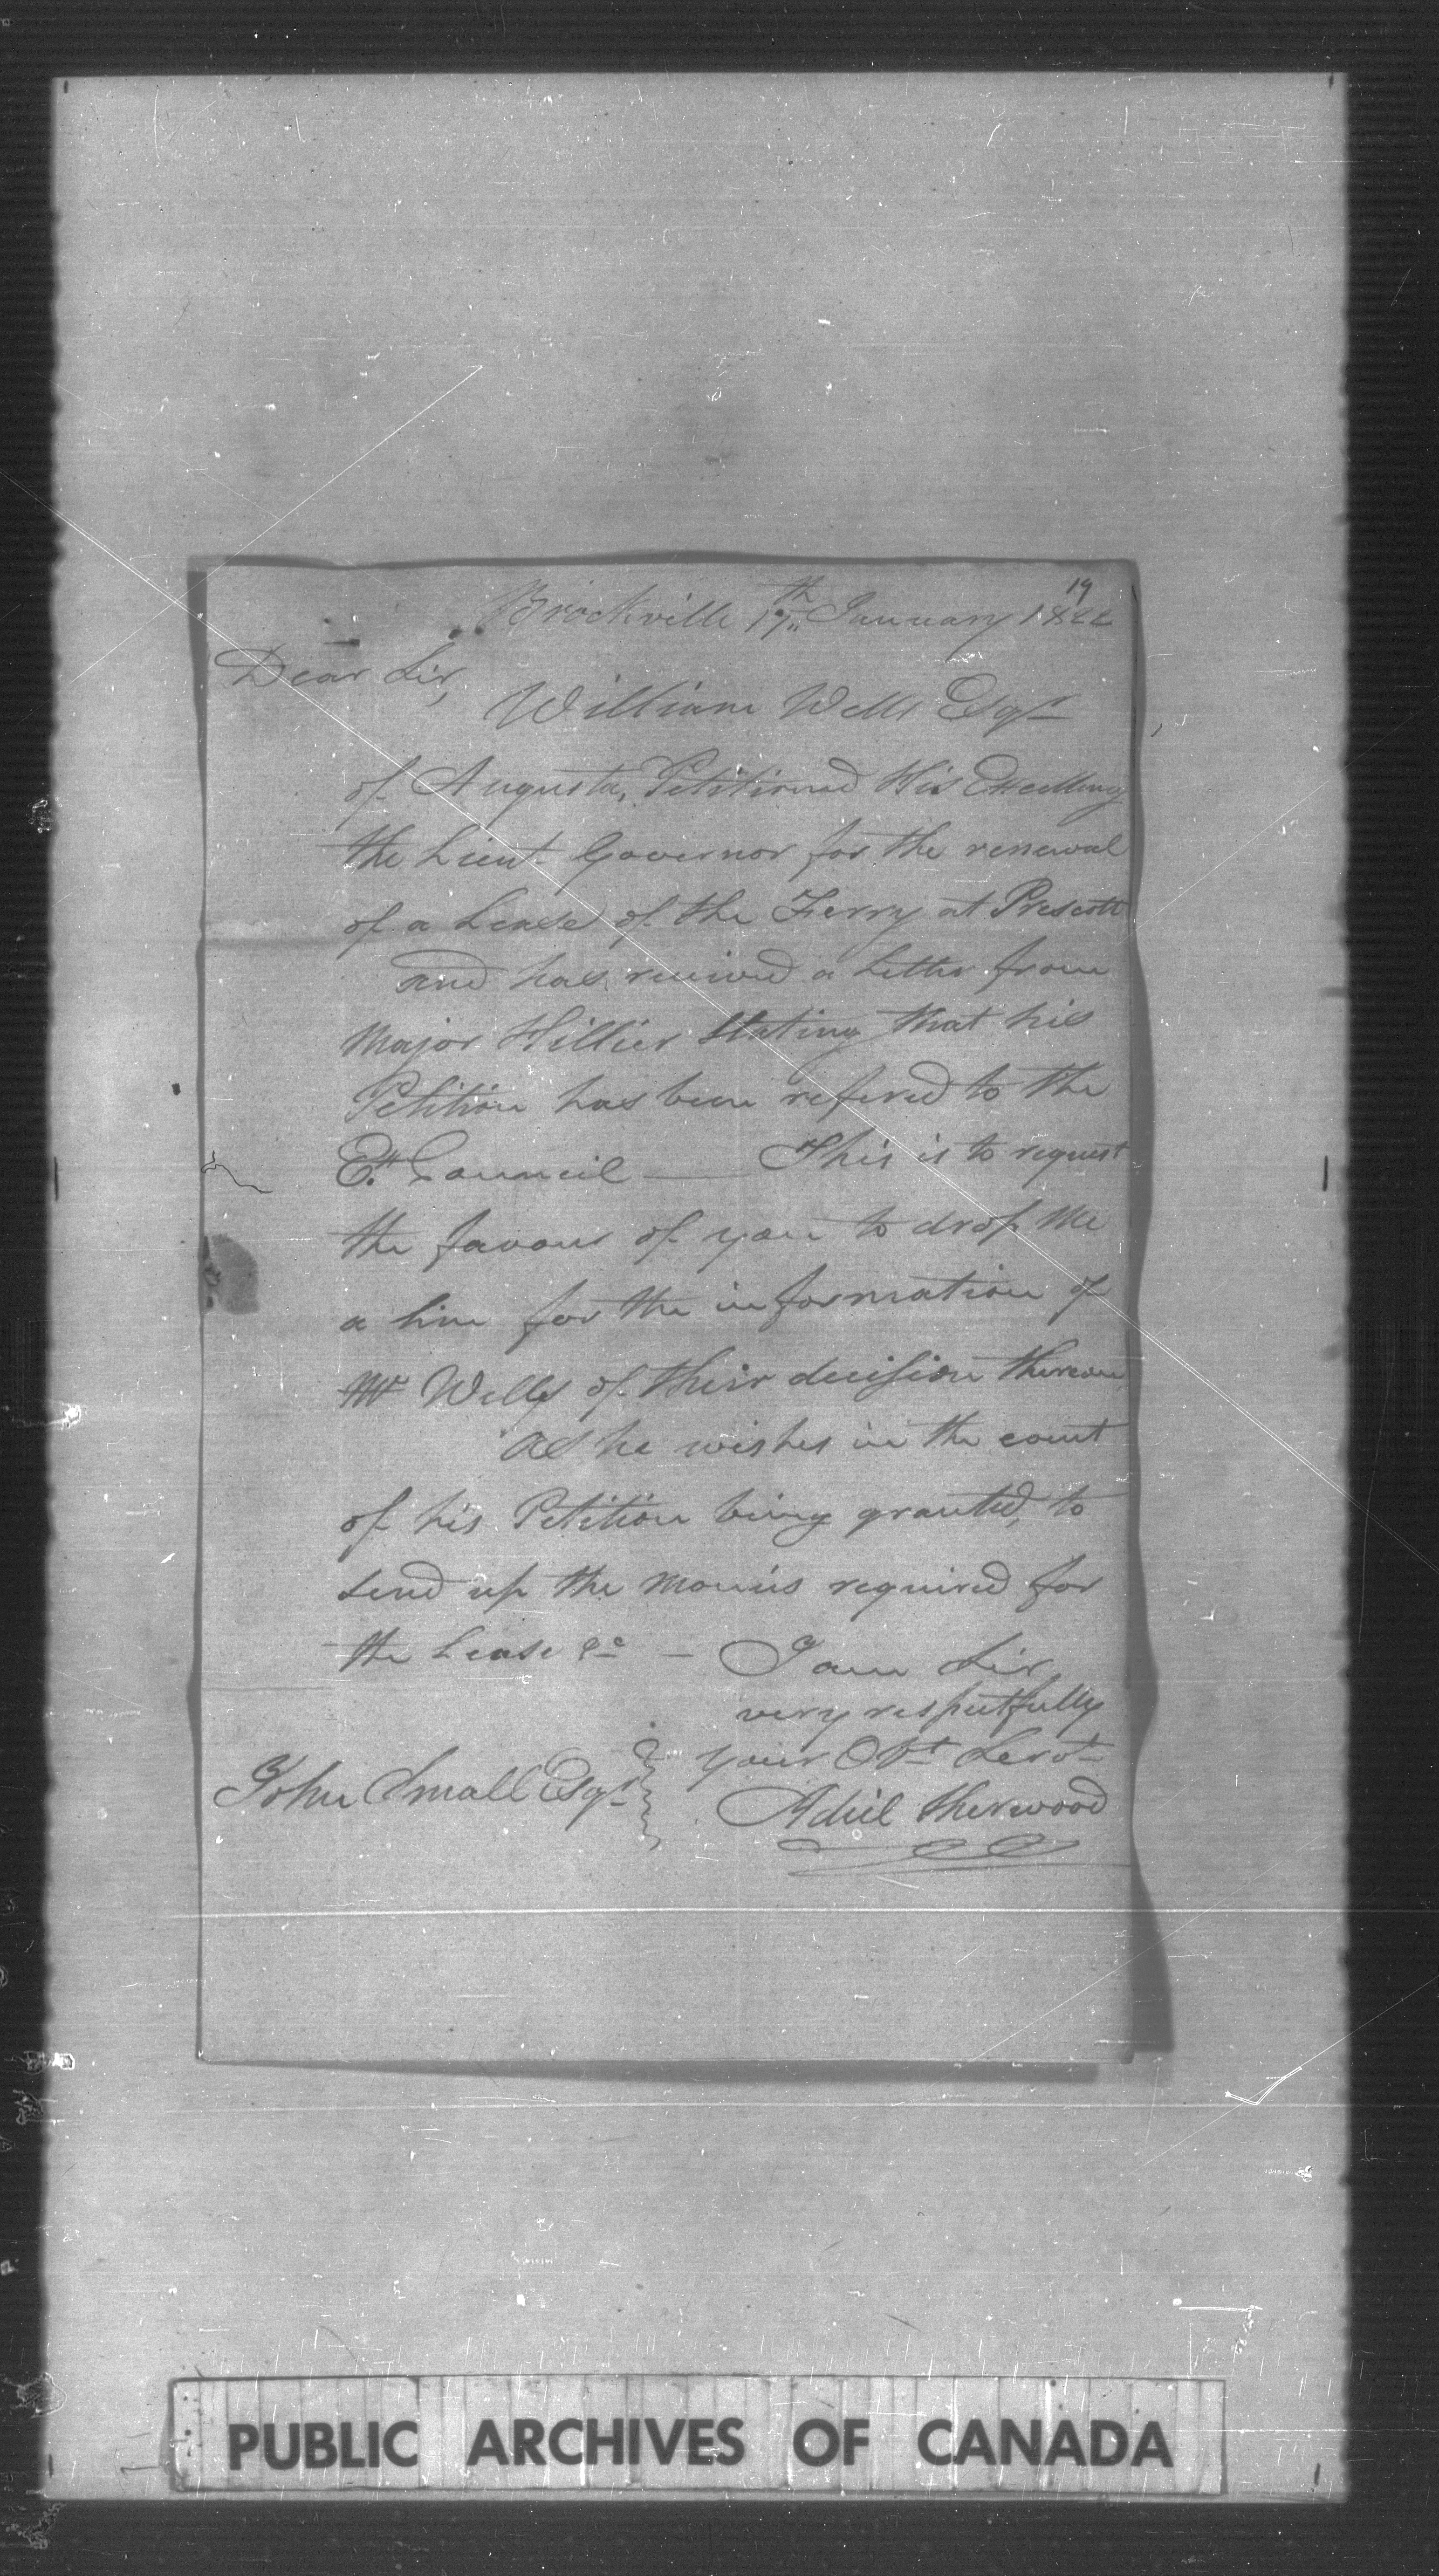 19
Brockville 17th January 1822
Dear Sir,
William Wells Esqr
of Augusta, Petitioned His Excellency
the Lieut Governor for the renewal
of a Lease of the Ferry at Prescott
and has received a Letter from
Major Hillier Stating that his
Petition has been refered to the
Ex. Council — This is to request
the favour of you to drop me
a line for the information of
Mr Wells of their decision thereon
as he wishes in the event
of his Petition being granted, to
send up the monies required for
the Lease &c — I am Sir
very respectfully
your Obt Servt
John Small Esqr
Adiel Sherwood
PUBLIC ARCHIVES OF CANADA